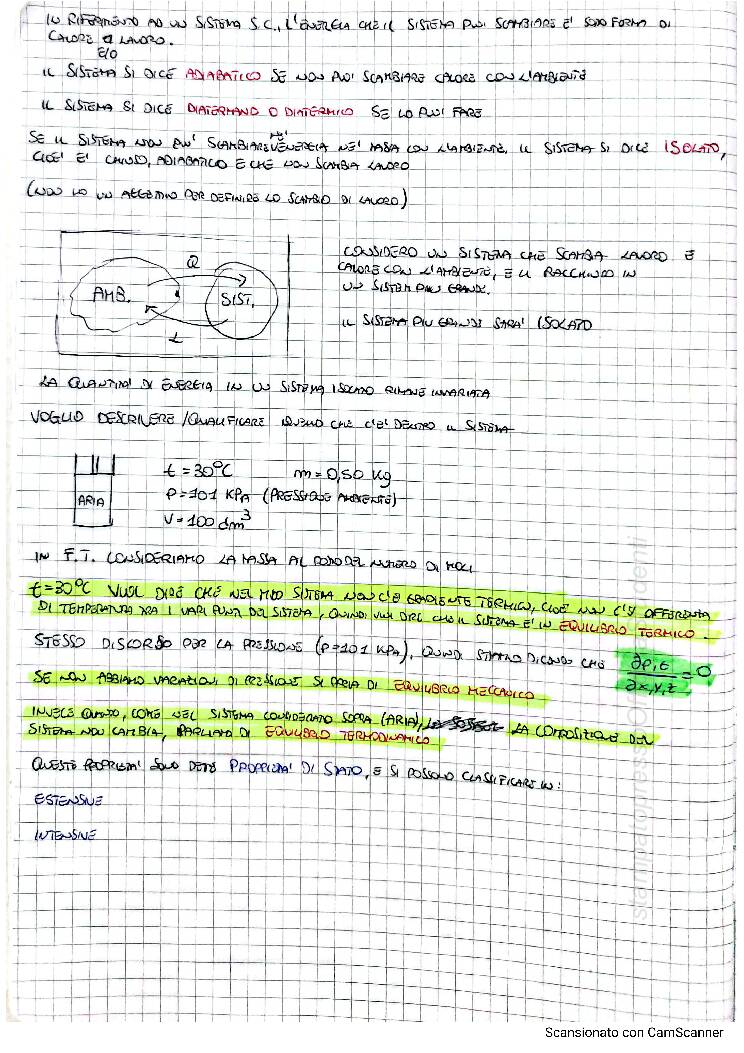 IN RIFERIMENTO AD UN SISTEMA S.C., L'ENERGIA CHE IL SISTEMA PUO' SCAMBIARE E' SOTTO FORMA DI
CALORE O LAVORO.
E/O
IL SISTEMA SI DICE ADIABATICO SE NON PUO' SCAMBIARE CALORE CON L'AMBIENTE
IL SISTEMA SI DICE DIATERMANO O DIATERMICO SE LO PUO' FARE
SE IL SISTEMA NON PUO' SCAMBIARE NE' ENERGIA NE' MASSA CON L'AMBIENTE, IL SISTEMA SI DICE ISOLATO,
CIOE' E' CHIUSO, ADIABATICO E CHE NON SCAMBIA LAVORO
(NON HO UN AGGETTIVO PER DEFINIRE LO SCAMBIO DI LAVORO)
AMB.
Q
SIST.
L
CONSIDERO UN SISTEMA CHE SCAMBIA LAVORO E
CALORE CON L'AMBIENTE, E LI RACCHIUDO IN
UN SISTEMA PIU GRANDE.
IL SISTEMA PIU GRANDE SARA' ISOLATO
LA QUANTITA' DI ENERGIA IN UN SISTEMA ISOLATO RIMANE INVARIATA
VOGLIO DESCRIVERE/QUALIFICARE QUELLO CHE C'E' DENTRO IL SISTEMA
ARIA
t = 30°C m = 0,50 Kg
P = 101 KPA (PRESSIONE AMBIENTE)
V = 100 dm³
IN F.T. CONSIDERIAMO LA MASSA AL POSTO DEL NUMERO DI MOLI
t = 30°C VUOL DIRE CHE NEL MIO SISTEMA NON C'E' GRADIENTE TERMICO, CIOE' NON C'E' DIFFERENZA
DI TEMPERATURA TRA I VARI PUNTI DEL SISTEMA, QUINDI VUOL DIRE CHE IL SISTEMA E' IN EQUILIBRIO TERMICO.
STESSO DISCORSO PER LA PRESSIONE (P = 101 KPA), QUINDI STIAMO DICENDO CHE ∂P,t / ∂x,y,z = 0
SE NON ABBIAMO VARIAZIONI DI PRESSIONE SI PARLA DI EQUILIBRIO MECCANICO
INVECE QUANDO, COME NEL SISTEMA CONSIDERATO SOPRA (ARIA), LA COMPOSIZIONE DEL
SISTEMA NON CAMBIA, PARLIAMO DI EQUILIBRIO TERMODINAMICO
QUESTE PROPRIETA' SONO DETTE PROPRIETA' DI STATO, E SI POSSONO CLASSIFICARE IN:
ESTENSIVE
INTENSIVE
Scansionato con CamScanner